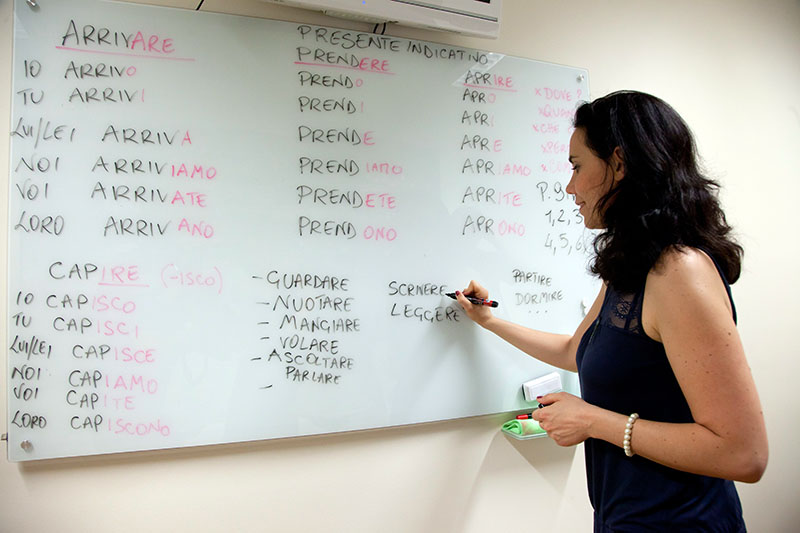 ARRIVARE
IO ARRIVO
TU ARRIVI
LUI/LEI ARRIVA
NOI ARRIVIAMO
VOI ARRIVATE
LORO ARRIVANO
PRESENTE INDICATIVO
PRENDERE
PRENDO
PRENDI
PRENDE
PRENDIAMO
PRENDETE
PRENDONO
APRIRE
APRO
APRI
APRE
APRIAMO
APRITE
APRONO
x DOVE ?
x CHE
P.
1, 2, 3
4, 5, 6
CAPIRE (-ISCO)
IO CAPISCO
TU CAPISCI
LUI/LEI CAPISCE
NOI CAPIAMO
VOI CAPITE
LORO CAPISCONO
- GUARDARE
- NUOTARE
- MANGIARE
- VOLARE
- ASCOLTARE
- PARLARE
SCRIVERE
LEGGERE
PARTIRE
DORMIRE
...